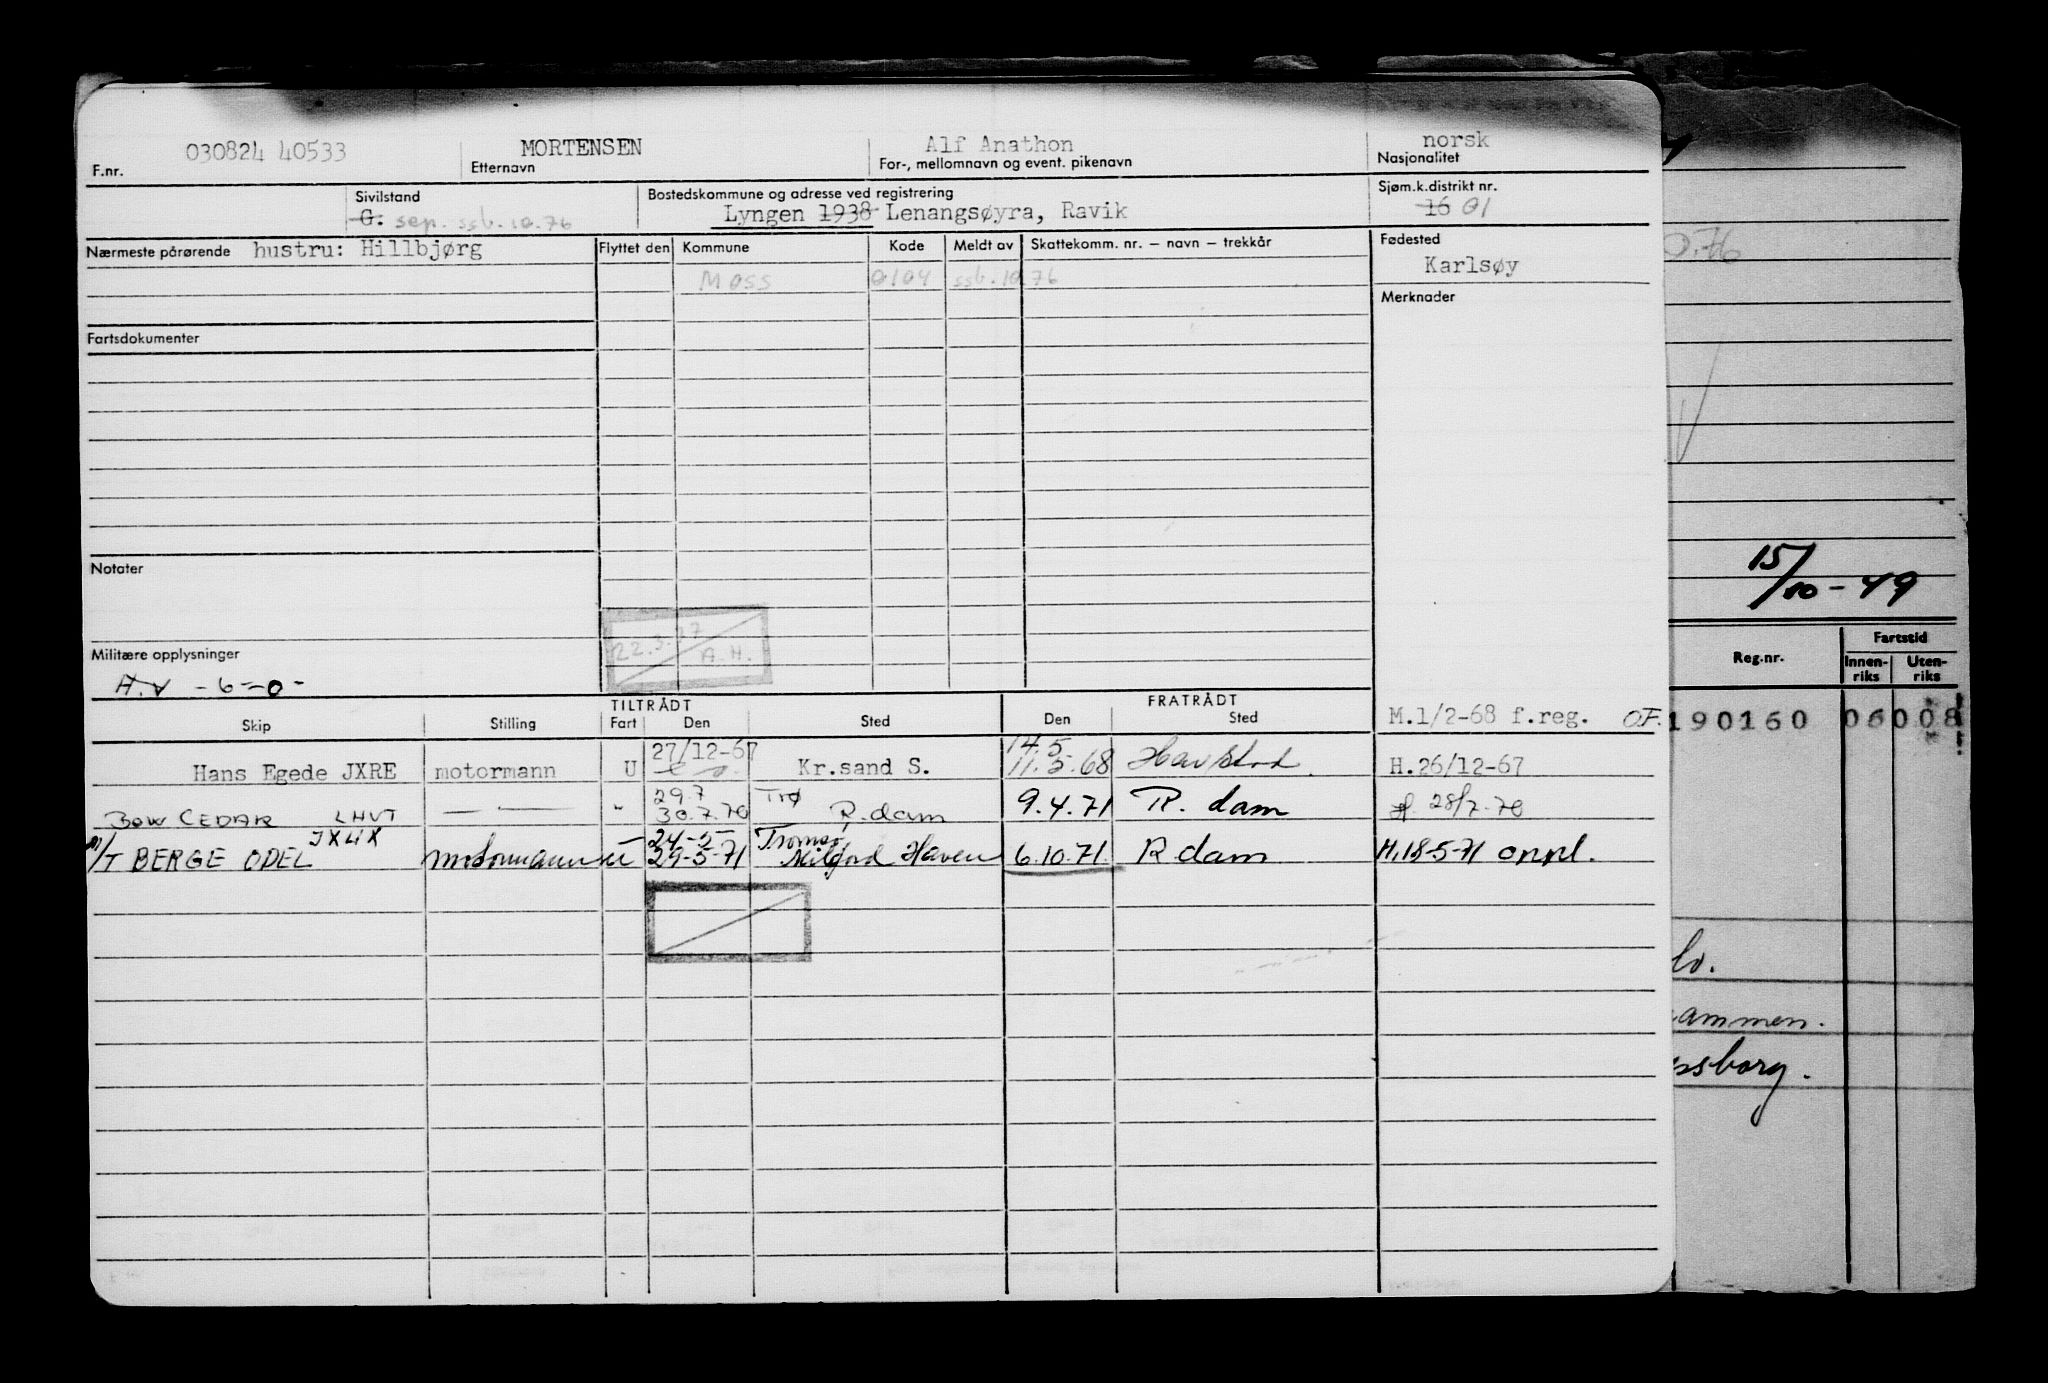 030824 40533 MORTENSEN Alf Anathon norsk
F.nr. Etternavn For-, mellomnavn og event. pikenavn Nasjonalitet
Sivilstand Bostedskommune og adresse ved registrering Sjøm.k.distrikt nr.
G. sep. ssb. 10.76 Lyngen 1938 Lenangsøyra, Ravik 16 01
Nærmeste pårørende hustru: Hillbjørg Flyttet den Kommune Kode Meldt av Skattekomm. nr. – navn – trekkår Fødested
Karlsøy
Moss 0104 ssb. 10.76
Merknader
Fartsdokumenter
Notater
15/10-49
22.3.77
A.H.
Militære opplysninger
A.v - 6-0-
TILTRÅDT FRATRÅDT
Skip Stilling Fart Den Sted Den Sted M.1/2-68 f.reg. OF.
27/12-67 14.5
Hans Egede JXRE motormann U Kr.sand S. 11.5.68 H.26/12-67
29.7 Trø
BOW CEDAR LHVT — — " 30.7.70 R.dam 9.4.71 R. dam 28/7-70
JXLIX 24-5 Tromsø
M/T BERGE ODEL motormann 29-5-71 Milford Haven 6.10.71 R dam H.18-5-71
0.76
Fartstid
Reg.nr. Innen-riks Uten-riks
190160 06 008
lo.
ammen.
psborg.